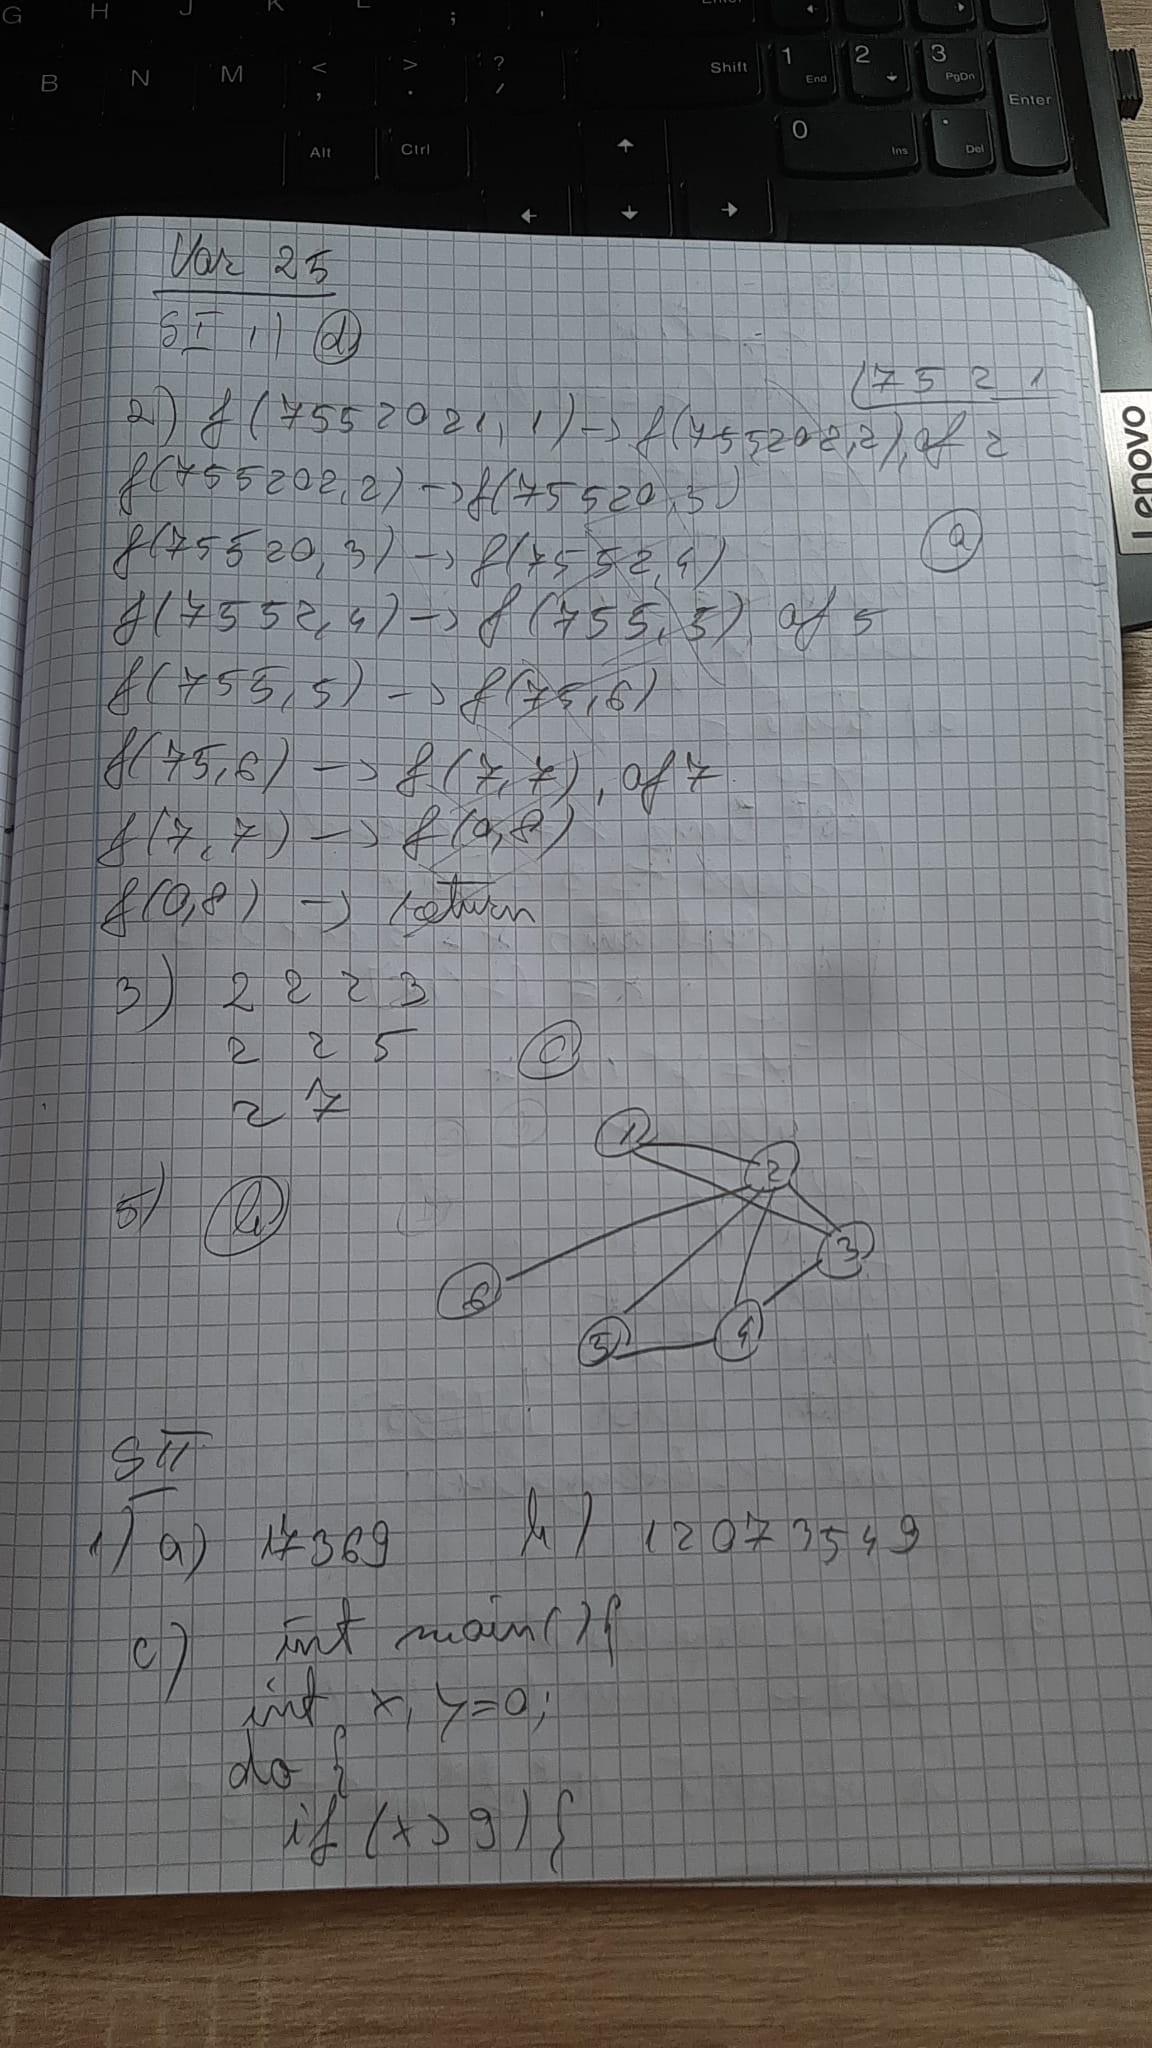 G H J K L ; ' Enter
B N M < , > . ? / Shift 1 End 2 3 PgDn Enter
Alt Ctrl 0 Ins . Del
Lenovo
Var 25
SI 1) d
7 5 2 1
2) f(7552021, 1) -> f(755202, 2), af 2
f(755202, 2) -> f(75520, 3)
f(75520, 3) -> f(7552, 4) a
f(7552, 4) -> f(755, 5) af 5
f(755, 5) -> f(75, 6)
f(75, 6) -> f(7, 7), af 7
f(7, 7) -> f(0, 8)
f(0, 8) -> return
3) 2 2 2 3
2 2 5 c
2 7
1 2
5) b 3
6
5 4
SII
1) a) 17369 b) 12073549
c) int main(){
int x, y=0;
do {
if (x>9) {